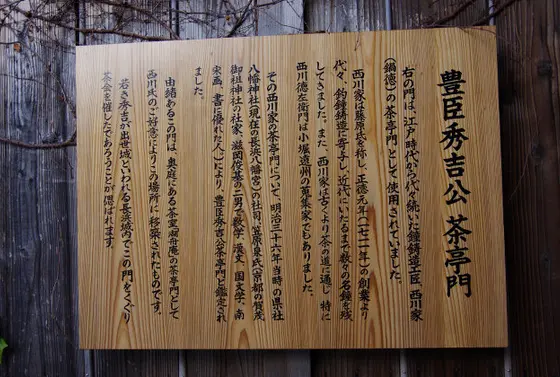 豊臣秀吉公 茶亭門
右の門は、江戸時代から代々続いた鐘鋳造工匠、西川家
(鍋徳)の茶亭門として使用されていました。
西川家は藤原氏を称し、正徳元年(一七一一年)の創業より
代々、釣鐘鋳造に寄与し、近代にいたるまで数々の名鐘を残
してきました。また、西川家は古くより茶の道に通じ、特に
西川徳左衛門は小堀遠州の蒐集家でもありました。
その西川家の茶亭門について、明治三十六年当時の県社
八幡神社(現在の長浜八幡宮)の社司、笠原泉氏(京都の賀茂
御祖神社の社家、滋岡佐基の二男で数学、漢文、国文学、南
宋画、書に優れた人)により、豊臣秀吉公茶亭門と鑑定され
ました。
由緒あるこの門は、奥庭にある茶室 舟庵の茶亭門として
西川氏のご好意によりこの場所に移築されたものです。
若き秀吉が出世城といわれる長浜城内でこの門をくぐり
茶会を催したであろうことが偲ばれます。